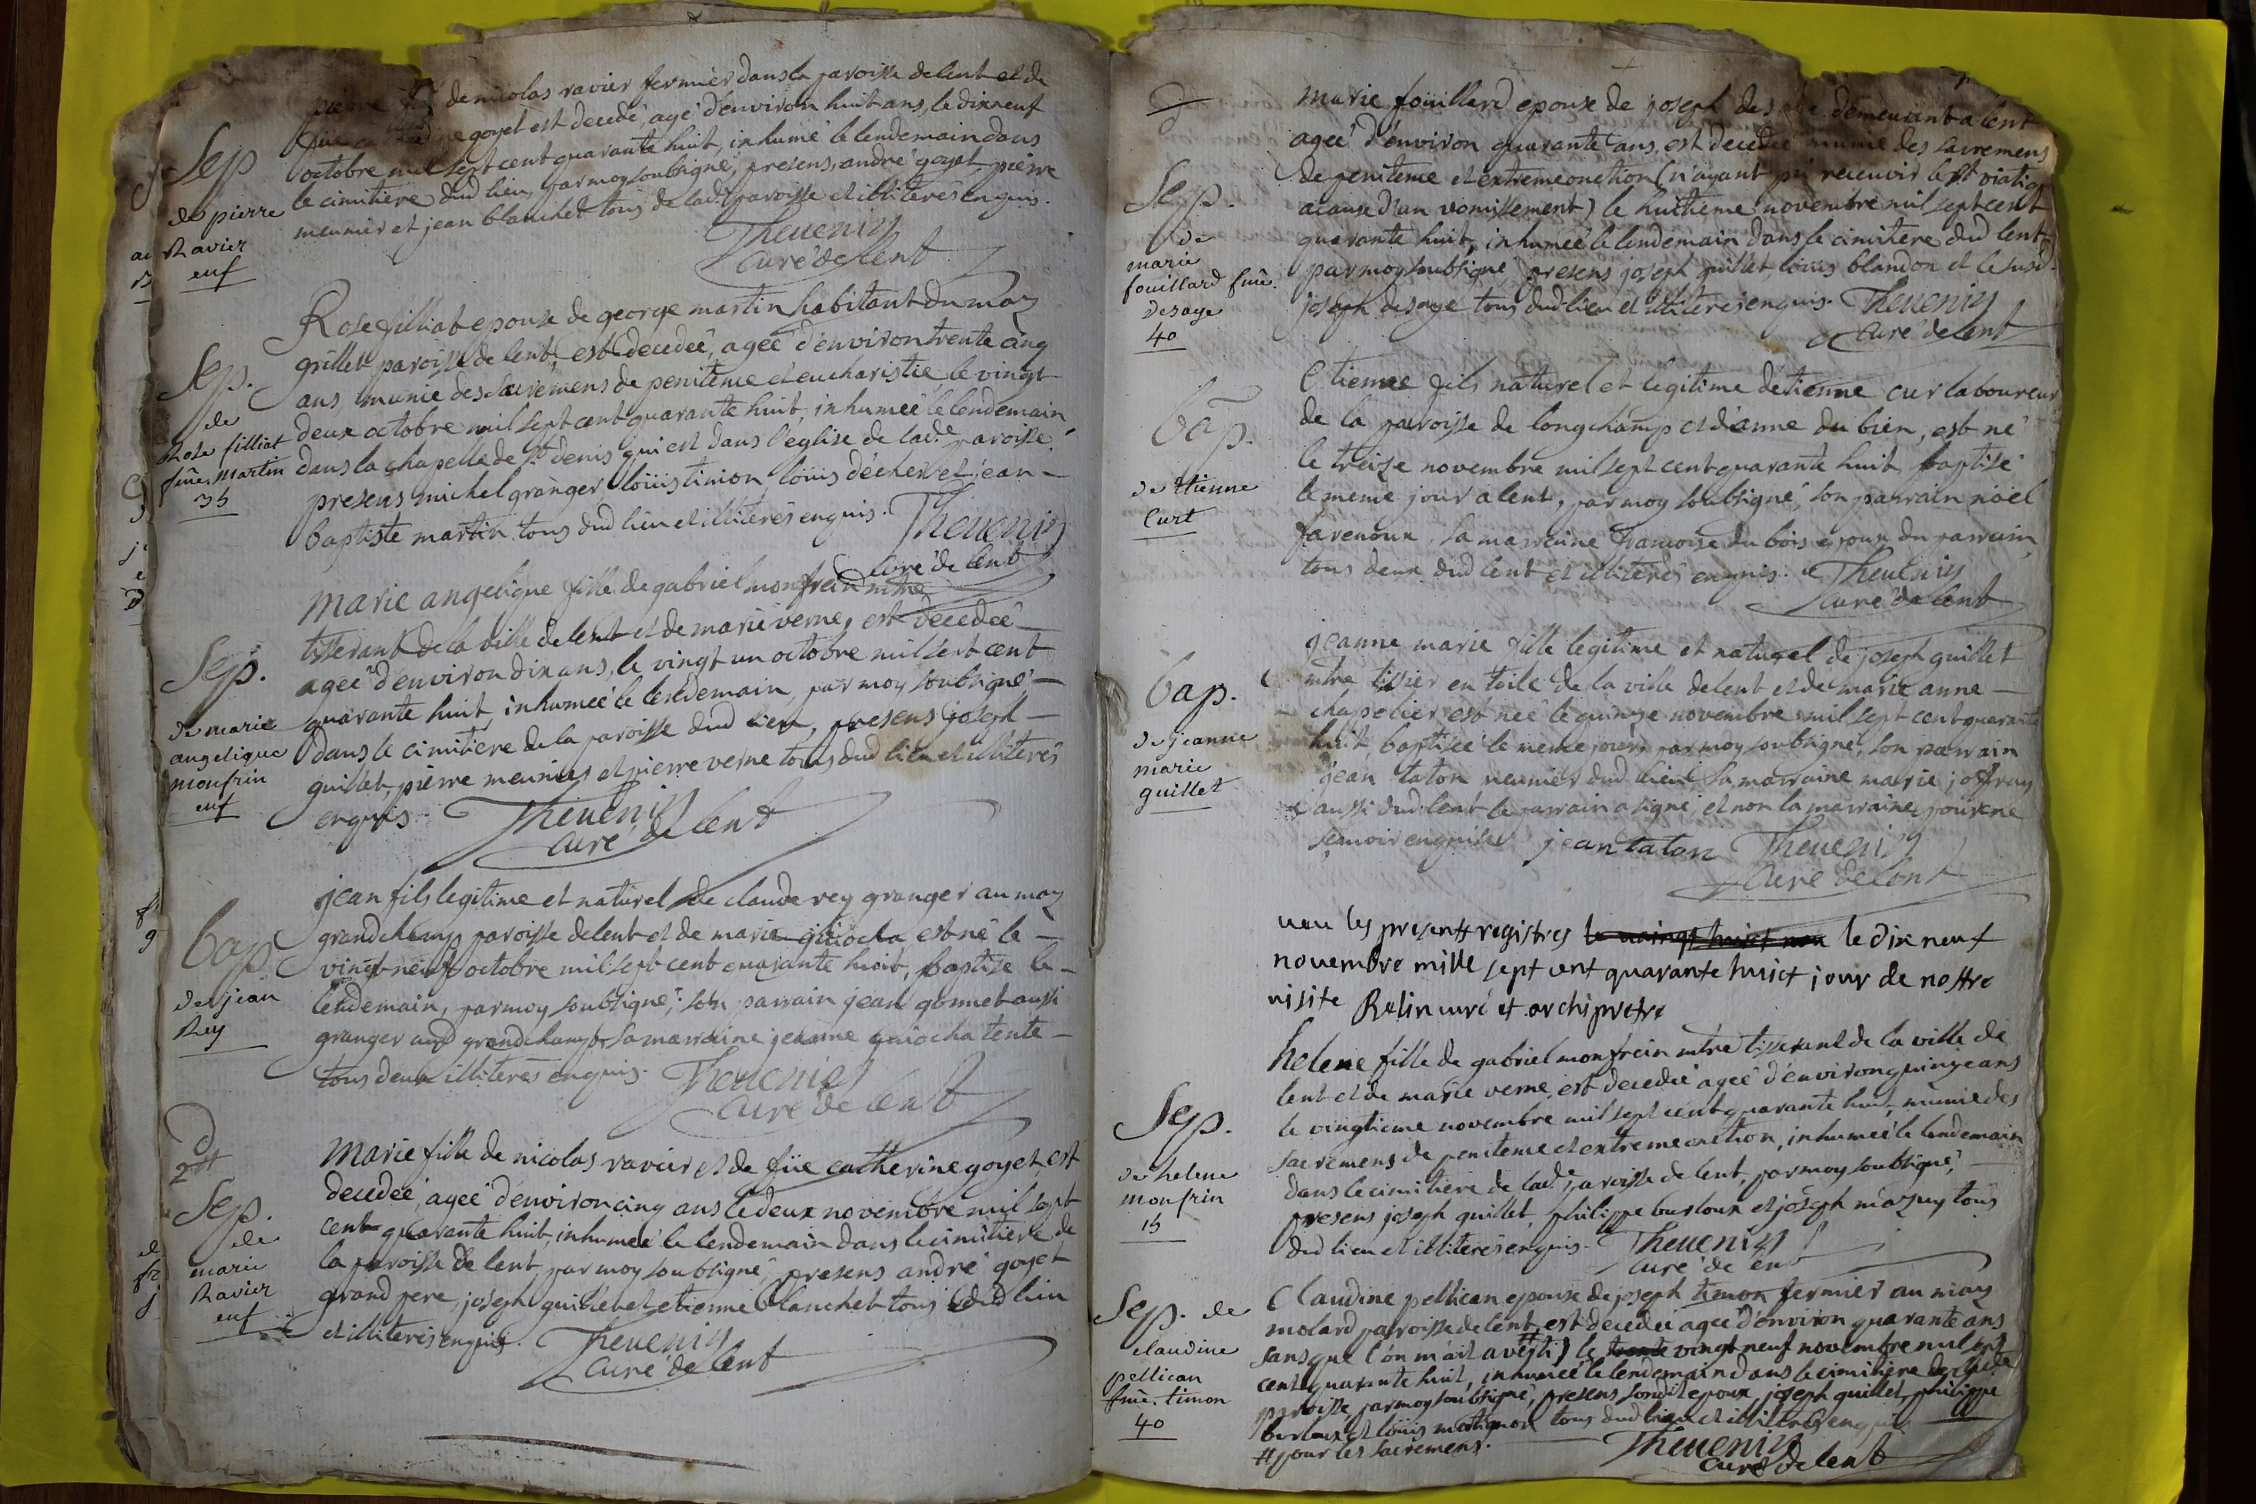 Sep
de pierre
Ravier
enf
pierre fils de nicolas ravier fermier dans la paroisse de lent et de
füe goyet est decedé, agé d'environ huit ans, le dixneuf
octobre mil sept cent quarante huit, inhumé le lendemain dans
le cimitiere dud lieu, par moy soubsigné, presens, andré goyet, pierre
meunier et jean blanchet tous de lad. paroisse et illiterés enquis.
Thevenin
curé de lent
Sep.
de
Rose filliat
fme. Martin
35
Rose filliat epouse de george martin habitant du maz
grillet paroisse de lent, est decedeé, agée d'environ trente cinq
ans, munie des sacremens de penitence et eucharistie, le vingt
deux octobre mil sept cent quarante huit, inhumeé le lendemain
dans la chapelle de st denis qui est dans l'église de lad.e paroisse
presens michel granger, loüis timon, loüis et jean -
baptiste martin tous dud lieu et illiterés enquis. Thevenin
curé de lent
Sep.
de marie
angelique
monfrin
enf
marie angelique fille de gabriel monfrein mtre
tisserant de la ville de lent et de marie verne, est decedeé -
ageé d'environ dix ans, le vingt un octobre mil sept cent
quarante huit, inhumeé le lendemain, par moy soubsigné -
dans le cimitiere de la paroisse dud lieu, presens joseph -
guillet, pierre meunier et pierre verne tous dud lieu et illiterés
enquis. Thevenin
curé de lent
bap
de jean
Rey
jean fils legitime et naturel de claude rey granger au maz
grandchamp paroisse de lent et de marie guiocha est né le -
vingt-neuf octobre mil sept cent quarante huit, baptisé le -
lendemain, par moy soubsigné, son parrain jean gonnet aussi
granger aud grandchamp, sa marraine jeanne guiocha tente -
tous deux illiterés enquis. Thevenin
curé de lent
2tt
Sep.
de
marie
Ravier
enf
marie fille de nicolas ravier et de füe catherine goyet est
decedeé, ageé d'environ cinq ans le deux novembre mil sept
cent quarante huit, inhumeé le lendemain dans le cimitiere de
la paroisse de lent, par moy soubsigné, presens andré goyet
grand pere, joseph guillet et etienne blanchet tous dud lieu
et illiterés enquis. Thevenin
curé de lent
Sep.
de
marie
fouillard fme.
desaye
40
marie foüillard epouse de joseph demeurant a lent
ageé d'environ quarante ans, est decedeé munie des sacremens
de penitence et extremeonction (n'ayant pû recevoir le st viatiq
acause d'un vomissement) le huitieme novembre mil sept cent
quarante huit, inhumeé le lendemain dans le cimitiere dud lent
par moy soubsigné, presens joseph guillet loüis blandon et le susd.
joseph desaye tous dud lieu et illiterés enquis. Thevenin
curé de lent
bap.
de etienne
Curt
Etienne fils naturel et legitime d'etienne cur laboureur
de la paroisse de longchamp et d'anne du bien, est né
le treize novembre mil sept cent quarante huit, baptisé
le meme jour a lent, par moy soubsigné, son parrain noël
favenoux, sa marraine francoise du bois epoux du parrain
tous deux dud lent et illiterés enquis. Thevenin
curé de lent
bap.
de jeanne
marie
guillet
jeanne marie fille legitime et naturel de joseph guillet
mtre tissier en toile de la ville de lent et de marie anne -
chapelier est neé le quinze novembre mil sept cent quarante
huit baptiseé le meme jour, par moy soubsigné, son parrain
jean taton meunier dud lieu, sa marraine marie joffray
aussi dud lent le parrain a signé et non la marraine, pour ne
sçavoir enquise jean taton Thevenin
curé de lent
veu les present registres le vaingt huict nou le dix neuf
novembre mille sept cent quarante huict jour de nostre
visite Relin curé et archipretre
Sep.
de helene
monfrin
15
helene fille de gabriel monfrein mtre tisserant de la ville de
lent et de marie verne, est decedeé ageé d'environ quinze ans
le vingtieme novembre mil sept cent quarante huit, munie des
sacremens de penitence et extreme onction, inhumeé le lendemain
dans le cimitiere de lad.e paroisse de lent, par moy soubsigné, -
presens joseph guillet, philippe burloux et joseph mazuy tous
dud lieu et illiterés enquis. Thevenin
curé de lent
Sep. de
claudine
pellican
fme. timon
40
Claudine pellican epouse de joseph timon fermier au maz
molard paroisse de lent, est decedeé ageé d'environ quarante ans
sans que l'on m'ait averti # le trente vingt neuf novembre mil sept
cent quarante huit, inhumeé le lendemain dans le cimitiere de lad.e
paroisse, par moy soubsigné, presens sondit epoux, joseph guillet, philippe
burloux et loüis tous dud lieu et illiterés enquis
# pour les sacremens. Thevenin
curé de lent